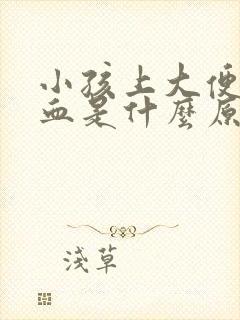 小孩上大便
血是什麼原
淺草